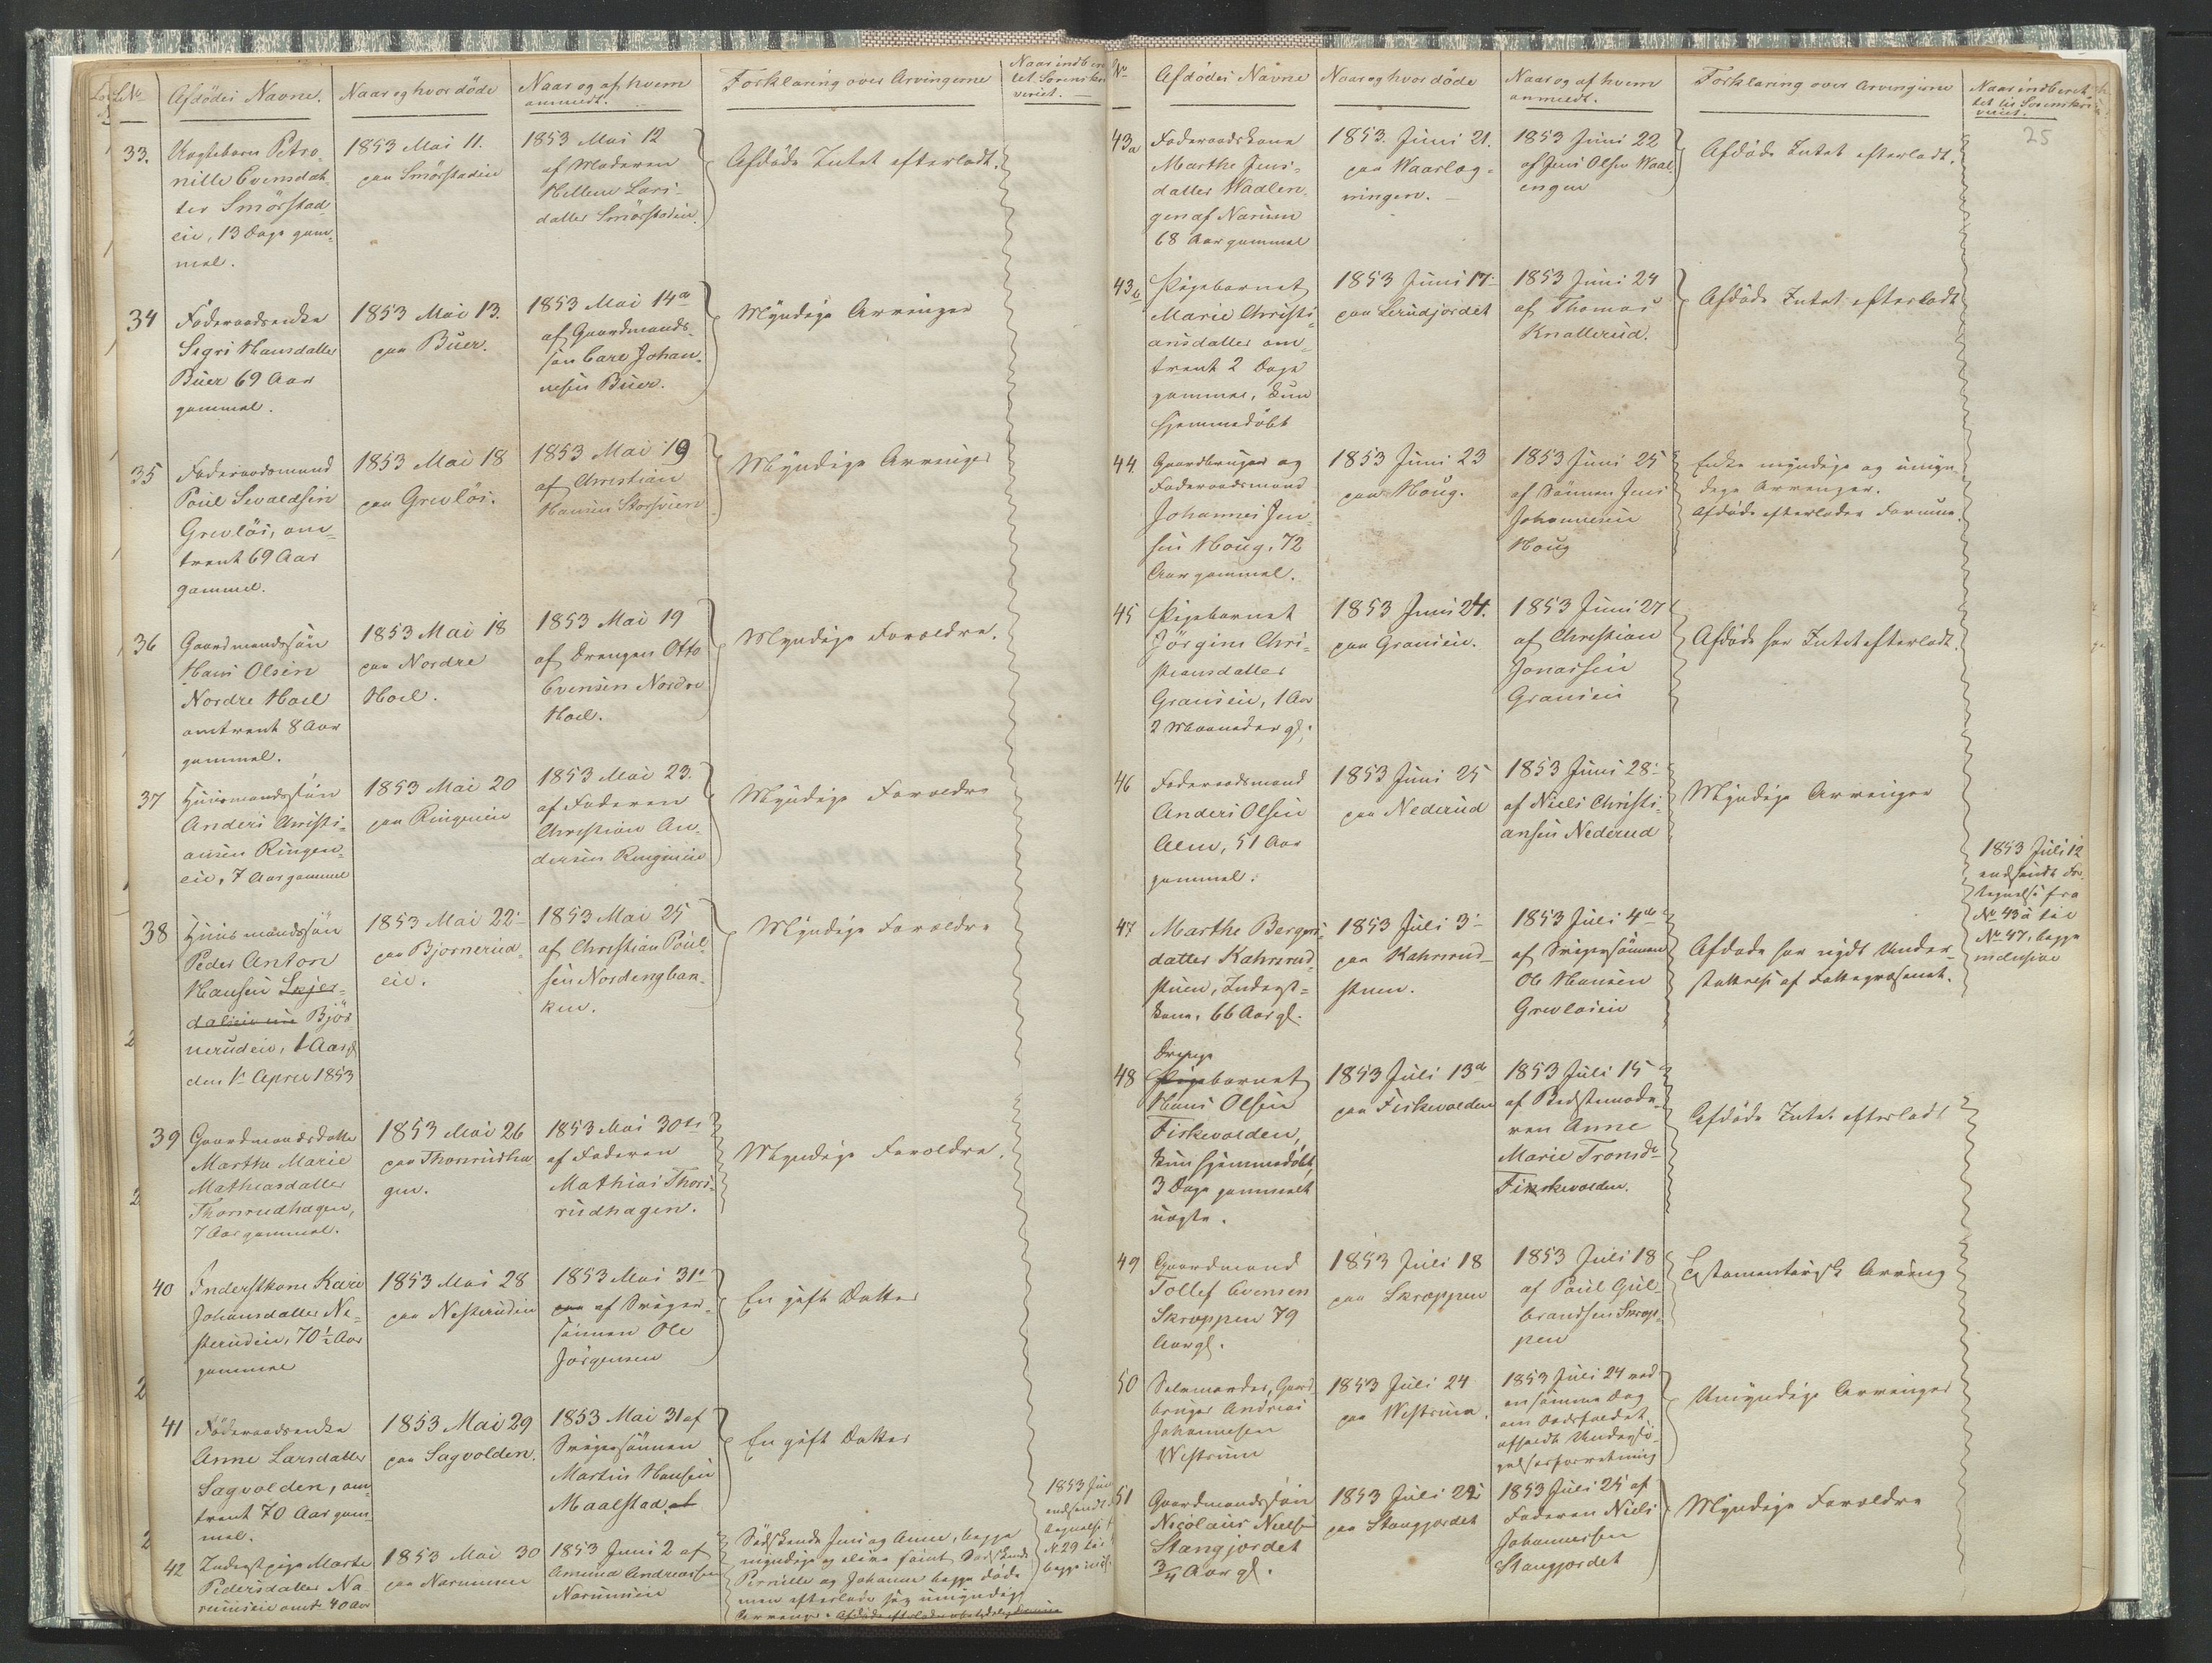 Nº
Afdødes Navne.
Naar og hvor døde
Naar og af hvem
anmeldt.
Forklaring over Arvingerne
Naar indberet-
tet Sorenskri-
veriet.
33.
Uægtebarn Petro-
nille Evensdat-
ter Smörstad-
eie, 13 Dage gam-
mel.
1853 Mai 11.
paa Smörstadeie
1853 Mai 12
af Moderen
Hellene Lars-
datter Smörstadeie.
Afdøde Intet efterladt.
34
Föderaadsenke
Sigri Hansdatter
Büer 69 Aar
gammel.
1853 Mai 13.
paa Büer.
1853 Mai 14de
af Gaardmands-
søn Carl Johan-
nesen Büer.
Myndige Arvinger
35
Föderaadsmand
Poul Sevaldsen
Grevlös, om-
trent 69 Aar
gammel.
1853 Mai 18
paa Grevlös.
1853 Mai 19
af Christian
Hansen Storsveen
Myndige Arvinger
36
Gaardmandssøn
Hans Olsen
Nordre Hoel
omtrent 8 Aar
gammel.
1853 Mai 18
paa Nordre
Hoel.
1853 Mai 19
af Drengen Otto
Evensen Nordre
Hoel.
Myndige Forældre.
37
Huusmandssøn
Anders Christi-
ansen Ringen-
eie, 7 Aar gammel
1853 Mai 20
paa Ringeneie
1853 Mai 23.
af Faderen
Christian An-
dersen Ringeneie
Myndige Forældre
38
Huusmandssøn
Peder Anton
Hansen Skjer-
dalseie Björ-
nerudeie, 1 Aar gl.
den 1ste April 1853
1853 Mai 22
paa Bjornerud-
eie.
1853 Mai 25
af Christian Poul-
sen Nordengban-
ken.
Myndige Forældre
39
Gaardmandsdatter
Marthe Marie
Mathiasdatter
Thorsrudhagen,
7 Aar gammel.
1853 Mai 26
paa Thorsrudha
gen.
1853 Mai 30te
af Faderen
Mathias Thors-
rudhagen.
Myndige Forældre.
40
Inderstkone Kari
Johansdatter Ne-
sterudeie, 70½ Aar
gammel
1853 Mai 28
paa Nesterudeie
1853 Mai 31te
paa af Sviger-
sønnen Ole
Jørgensen
En gift Datter
41
Föderaadsenke
Anne Larsdatter
Sagvolden, om-
trent 70 Aar gam-
mel.
1853 Mai 29
paa Sagvolden.
1853 Mai 31 af
Svigersønnen
Martin Hansen
Maalstad
En gift Datter
42
Inderstpige Marte
Pedersdatter Na-
rumseie omtr. 40 Aar
1853 Mai 30
paa Narumseie
1853 Juni 2 af
Amund Andreassen
Narumseie
Södskende Jens og Anne, begge
myndige og ilive samt Södskende
Pernille og Johanne begge døde
men efterlade sig umyndige
Arvinger.
1853 Juni
N. 29 til
begge incl.
Nº
Afdødes Navne
Naar og hvor döde
Naar og af hvem
anmeldt.
Forklaring over Arvingerne
Naar indberet-
tet til Sorenskri-
veriet.
25
43a
Föderaadskone
Marthe Jens-
datter Waalen-
gen af Narum
68 Aar gammel
1853. Juni 21.
paa Waarlæg-
ningen.
1853 Juni 22
af Jens Olsen Waal-
engen
Afdøde Intet efterladt.
43b
Pigebarnet
Marie Christi-
ansdatter om-
trent 2 Dage
gammel, kun
hjemmedøbt
1853 Juni 17
paa Lerudjordet
1853 Juni 24
af Thomas
Knatterud.
Afdøde Intet efterladt
44.
Gaardbruger og
Føderaadsmand
Johannes Jen-
sen Houg, 72
Aar gammel.
1853 Juni 23
paa Houg.
1853 Juni 25
af Sønnen Jens
Johannesen
Houg
Enke myndige og umyn-
dige Arvinger.
Afdøde efterlader Formue.
45
Pigebarnet
Jörgine Chri-
stiansdatter
Granseie, 1 Aar
2 Maaneder gl.
1853 Juni 24.
paa Granseie.
1853 Juni 27
af Christian
Jonassen
Granseie
Afdøde har Intet efterladt.
46
Föderaadsmand
Anders Olsen
Alm, 51 Aar
gammel.
1853 Juni 25
paa Nederud
1853 Juni 28
af Niels Christi-
ansen Nederud
Myndige Arvinger
47
Marthe Bergers-
datter Kahrsrud-
stuen, Inderst-
kone, 66 Aar gl.
1853 Juli 3
paa Kahrsrud-
stuen.
1853 Juli 4de
af Svigersønnen
Ole Hansen
Grevløseie
Afdøde har nydt Under-
støttelse af Fattigvæsenet.
1853 Juli 12
indsendt For-
tegnelse fra
Nº 43a til
Nº 47, begge
inclusive
48
Drenge
Pigebarnet
Hans Olsen
Fiskevolden,
kun hjemmedøbt,
3 Dage gammelt
uægte.
1853 Juli 13de
paa Fiskevolden
1853 Juli 15
af Bedstemode-
ren Anne
Marie Tronsdr
Fiskevolden.
Afdøde Intet efterladt
49
Gaardmand
Tollef Evensen
Skroppen 79
Aar gl.
1853 Juli 18
paa Skroppen
1853 Juli 18
af Poul Gul-
brandsen Skrop-
pen
Testamentarisk Arving
50
Selvmorder, Gaard-
bruger Andreas
Johannesen
Westrum
1853 Juli 24
paa Westrum.
1853 Juli 24 ved
en samme Dag
om Dødsfaldet
afholdt Undersø-
gelsesforretning
Umyndige Arvinger
51
Gaardmandssøn
Nicolaus Nielsen
Stangjordet
¾ Aar gl.
1853 Juli 25
paa Stangjordet
1853 Juli 25 af
Faderen Niels
Johannessen
Stangjordet
Myndige Forældre